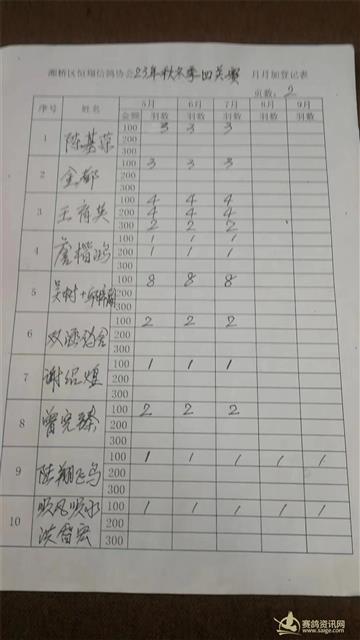 湘桥区恒翔信鸽协会23年秋冬季四关赛 月月加登记表
页数: 2
序号 姓名 5月 6月 7月 8月 9月
金额 羽数 羽数 羽数 羽数 羽数
1 陈基荣 100 3 3 3
200
300
2 金都 100 3 3 3
200
300
3 王有英 100 4 4 4
200 4 4 4
300 2 2 2
4 100 1 1 1
200 1 1 1
300
5 100 8 8 8
200
300
6 双涵鸽舍 100 2 2 2
200
300
7 谢绍煌 100 1 1 1
200
300
8 曾宪 100 2 2 2
200
300
9 陆翔飞鸟 100 1 1 1 1 1
200
300
10 顺风顺水 100 1 1 1 1 1
洪 宏 200
300
赛鸽资讯网
www.saige.com